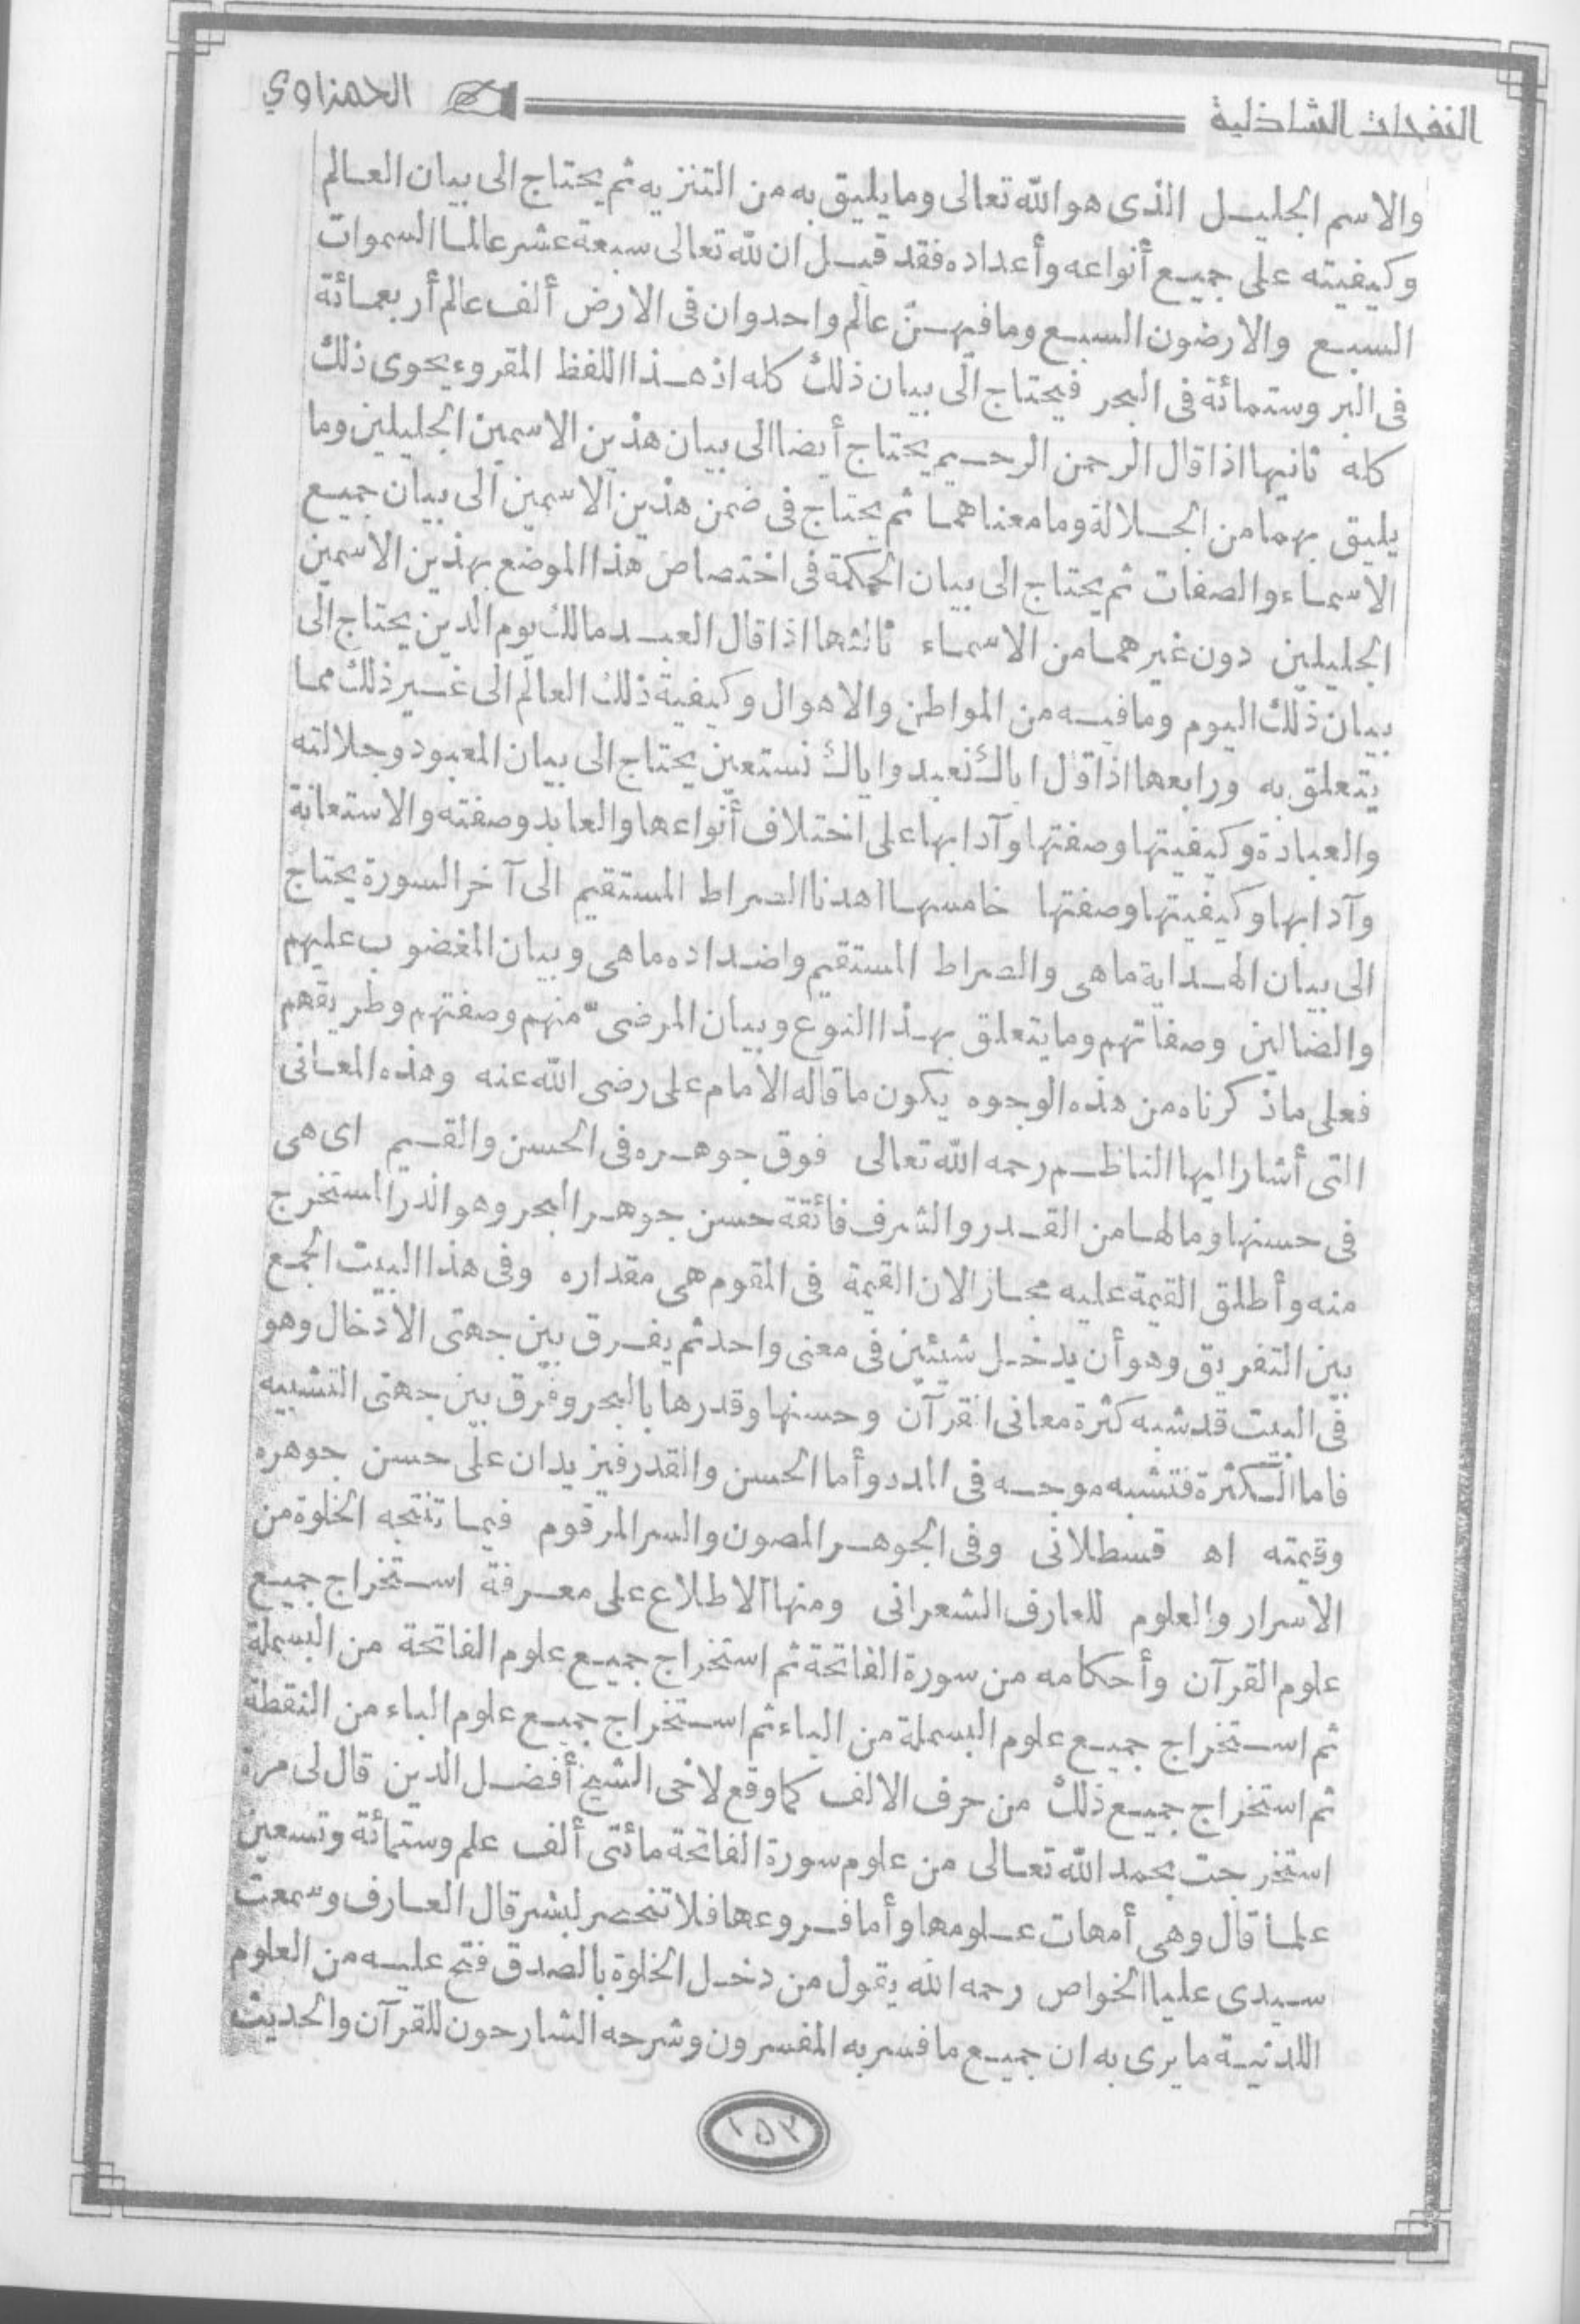 النفحات الشاذلية
الحمزاوي
والاسم الجليل الذى هو الله تعالى وما يليق به من التنزيه ثم يحتاج الى بيان العالم
وكيفيته على جميع أنواعه وأعداده فقد قيل ان لله تعالى سبعة عشر عالما السموات
السبع والارضون السبع وما فيهنّ عالم واحد وان فى الارض ألف عالم أربعمائة
فى البر وستمائة فى البحر فيحتاج الى بيان ذلك كله اذ هذا اللفظ المقروء يحوى ذلك
كله ثانيها اذا قال الرحمن الرحيم يحتاج أيضا الى بيان هذين الاسمين الجليلين وما
يليق بهما من الجلالة وما معناهما ثم يحتاج فى ضمن هذين الاسمين الى بيان جميع
الاسماء والصفات ثم يحتاج الى بيان الحكمة فى اختصاص هذا الموضع بهذين الاسمين
الجليلين دون غيرهما من الاسماء ثالثها اذا قال العبد مالك يوم الدين يحتاج الى
بيان ذلك اليوم وما فيه من المواطن والاهوال وكيفية ذلك العالم الى غير ذلك مما
يتعلق به ورابعها اذا قال اياك نعبد واياك نستعين يحتاج الى بيان المعبود وجلالته
والعبادة وكيفيتها وصفتها وآدابها على اختلاف أنواعها والعابد وصفته والاستعانة
وآدابها وكيفيتها وصفتها خامسها اهدنا الصراط المستقيم الى آخر السورة يحتاج
الى بيان الهداية ما هى والصراط المستقيم واضداده ما هى وبيان المغضوب عليهم
والضالين وصفاتهم وما يتعلق بهذا النوع وبيان المرضىّ منهم وصفتهم وطريقهم
فعلى ما ذكرناه من هذه الوجوه يكون ما قاله الامام على رضى الله عنه وهذه المعانى
التى أشار اليها الناظم رحمه الله تعالى فوق جوهره فى الحسن والقيم اى هى
فى حسنها وما لها من القدر والشرف فائقة حسن جوهر البحر وهو الدر المستخرج
منه وأطلق القيمة عليه مجازا لان القيمة فى المقوم هى مقداره وفى هذا البيت الجمع
بين التفريق وهو أن يدخل شيئين فى معنى واحد ثم يفرق بين جهتى الادخال وهو
فى البيت قد شبه كثرة معانى القرآن وحسنها وقدرها بالبحر وفرق بين جهتى التشبيه
فاما الكثرة فتشبه موجه فى المدد وأما الحسن والقدر فيزيدان على حسن جوهره
وقيمته اه قسطلانى وفى الجوهر المصون والسر المرقوم فيما تنتجه الخلوة من
الاسرار والعلوم للعارف الشعرانى ومنها الاطلاع على معرفة استخراج جميع
علوم القرآن وأحكامه من سورة الفاتحة ثم استخراج جميع علوم الفاتحة من البسملة
ثم استخراج جميع علوم البسملة من الباء ثم استخراج جميع علوم الباء من النقطة
ثم استخراج جميع ذلك من حرف الالف كما وقع لاخى الشيخ أفضل الدين قال لى مرة
استخرجت بحمد الله تعالى من علوم سورة الفاتحة مائتى ألف علم وستمائة وتسعين
علما قال وهى أمهات علومها وأما فروعها فلا تنحصر لبشر قال العارف وسمعت
سيدى عليا الخواص رحمه الله يقول من دخل الخلوة بالصدق فتح عليه من العلوم
اللدنية ما يرى به ان جميع ما فسر به المفسرون وشرحه الشارحون للقرآن والحديث
١٥٣